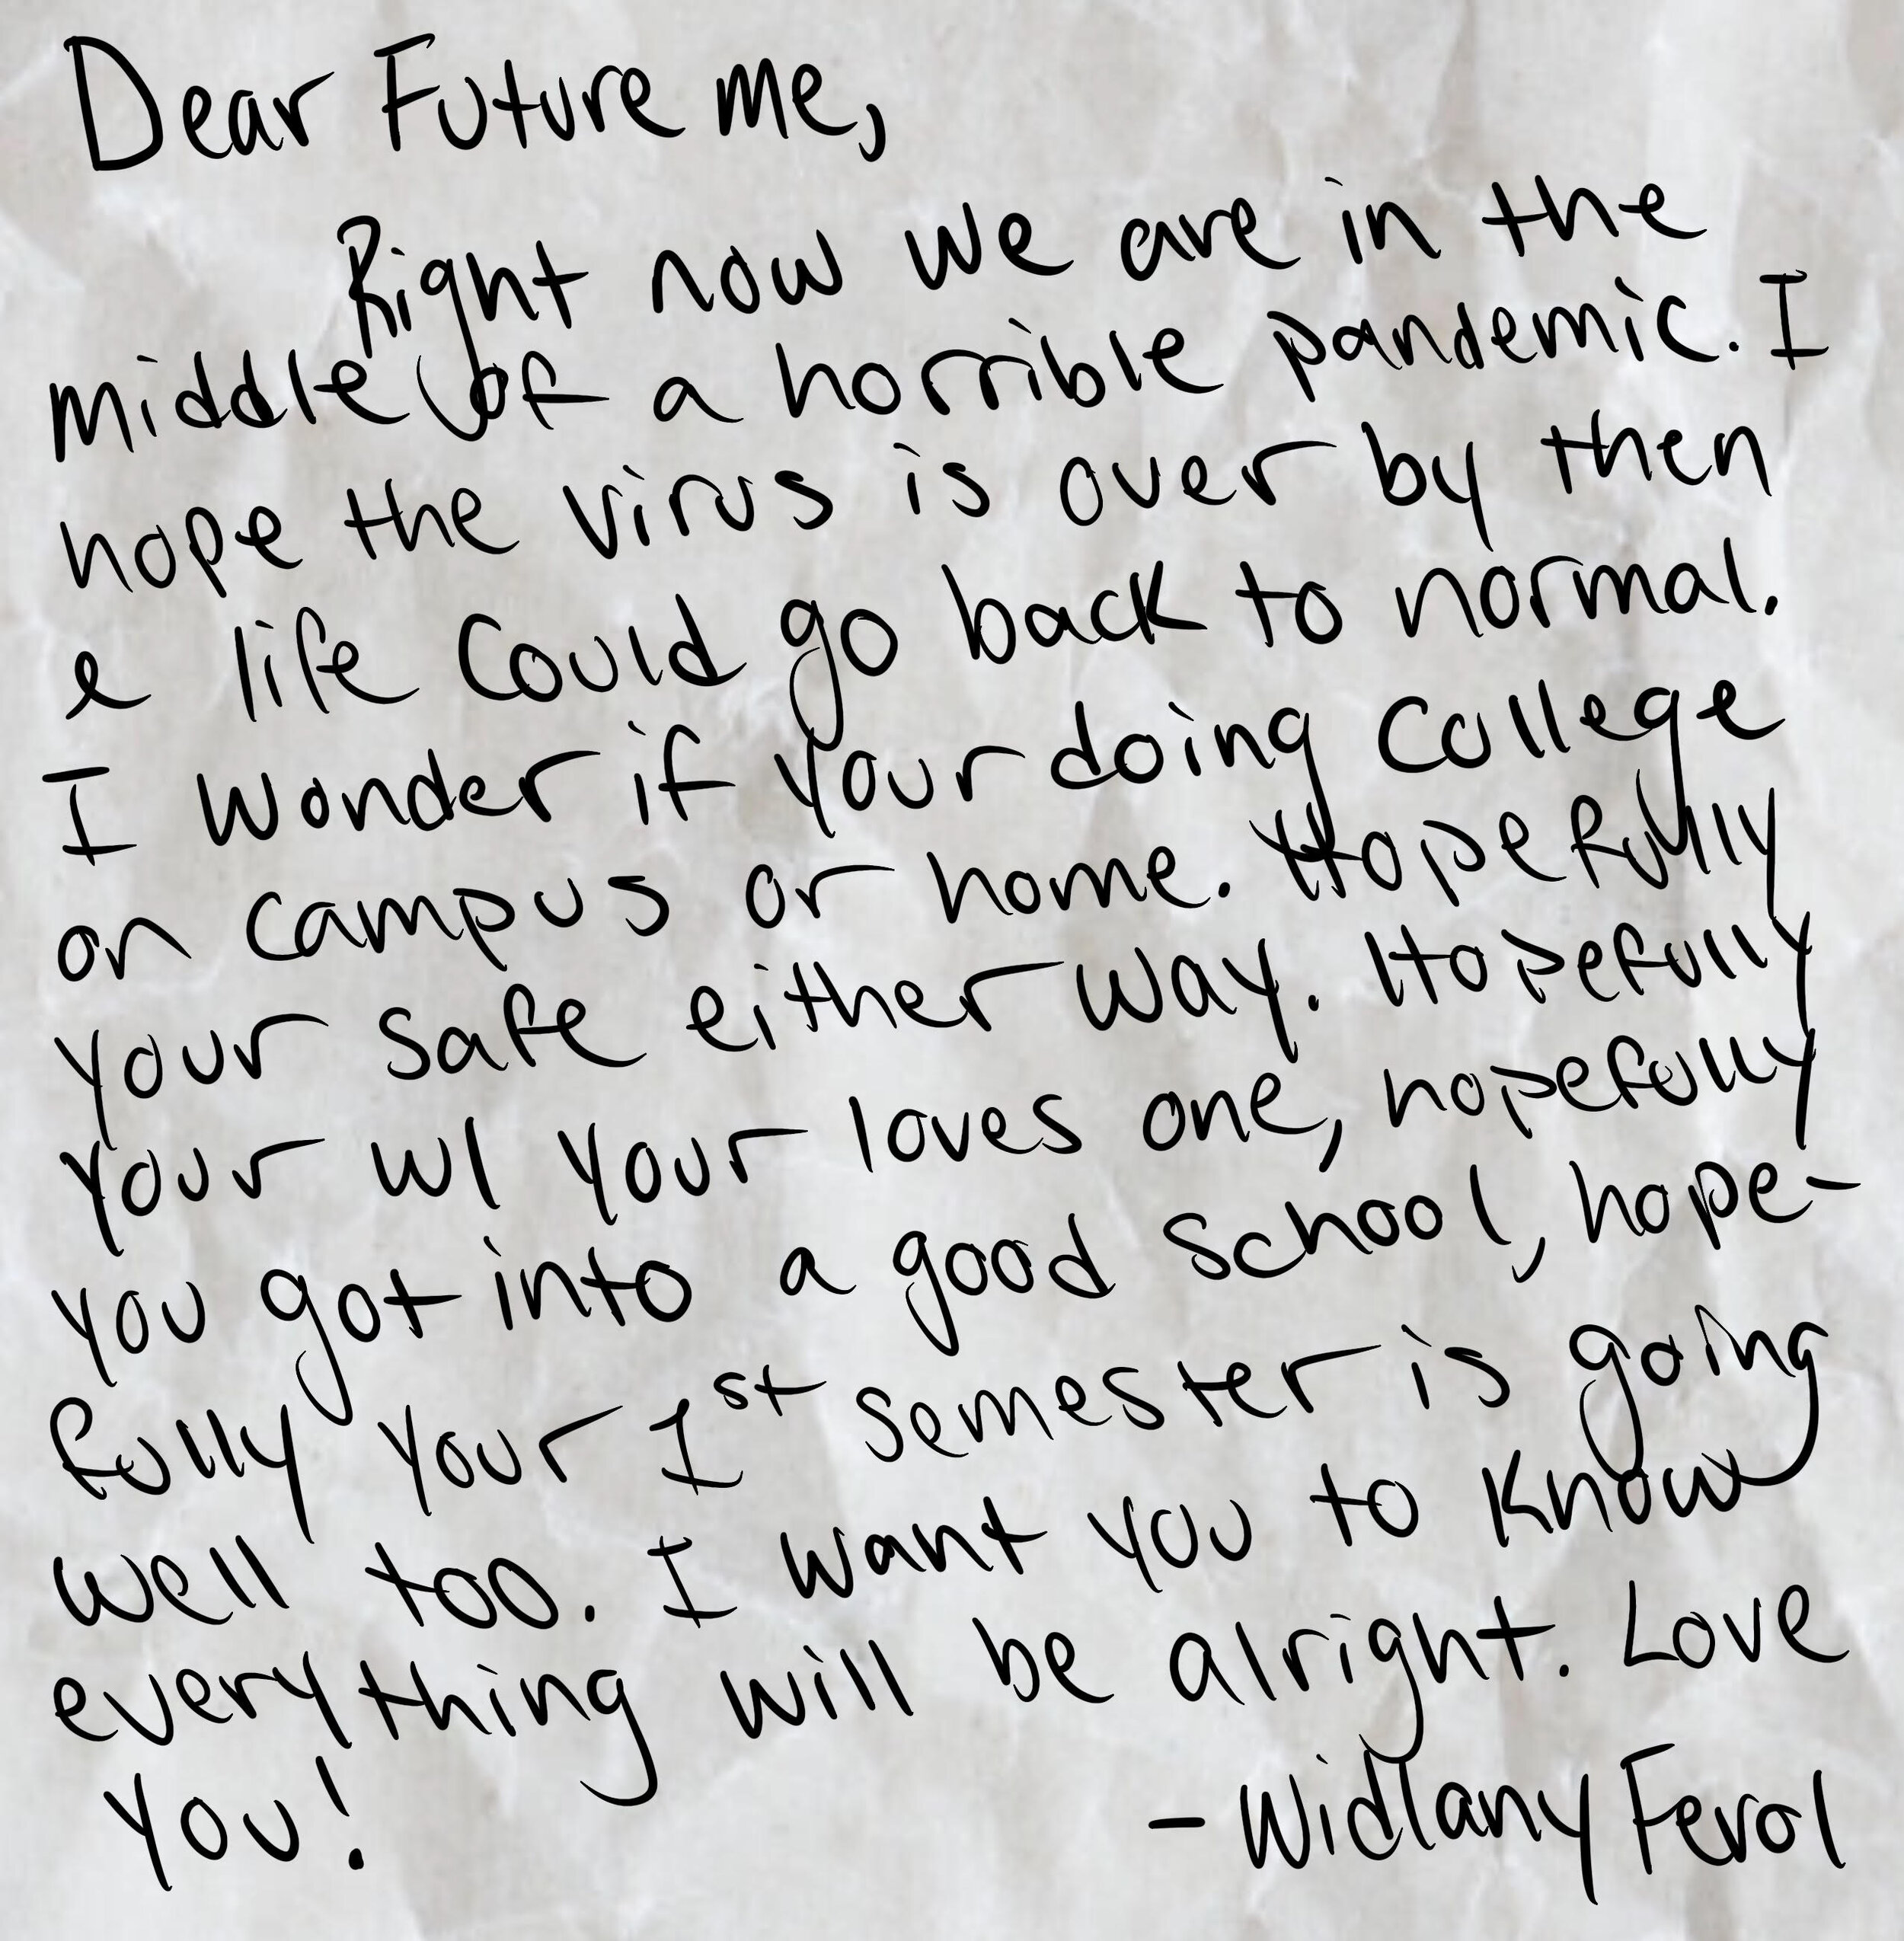 Dear Future me,
Right now we are in the
middle of a horrible pandemic. I
hope the virus is over by then
& life could go back to normal.
I wonder if your doing college
on campus or home. Hopefully
your safe either way. Hopefully
your w/ your loves one, hopefully
you got into a good school, hope-
fully your 1st semester is going
well too. I want you to know
everything will be alright. Love
you!
- Widlany Ferol